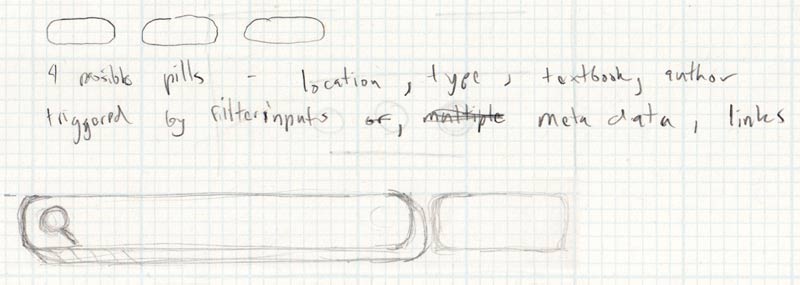 4 possible pills - location, type, textbook, author
triggered by filter inputs or, multiple meta data, links